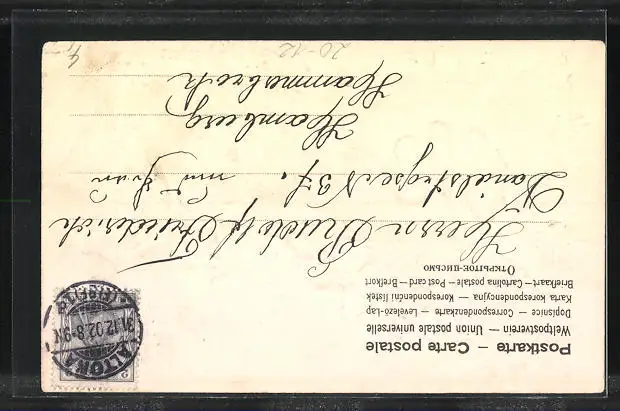 Postkarte — Carte postale
Weltpostverein — Union postale universelle
Dopisnice — Correspondenzkarte — Levelező-Lap
Karta korespondencyjna — Korespondenční lístek
Briefkaart — Cartolina postale — Post card — Brefkort
ОТКРЫТОЕ ПИСЬМО
Herrn Rudolf Friederich
und Frau
Hamburg
Hammerbrook
ALTONA
31.12.02.8-9N
2
20-12